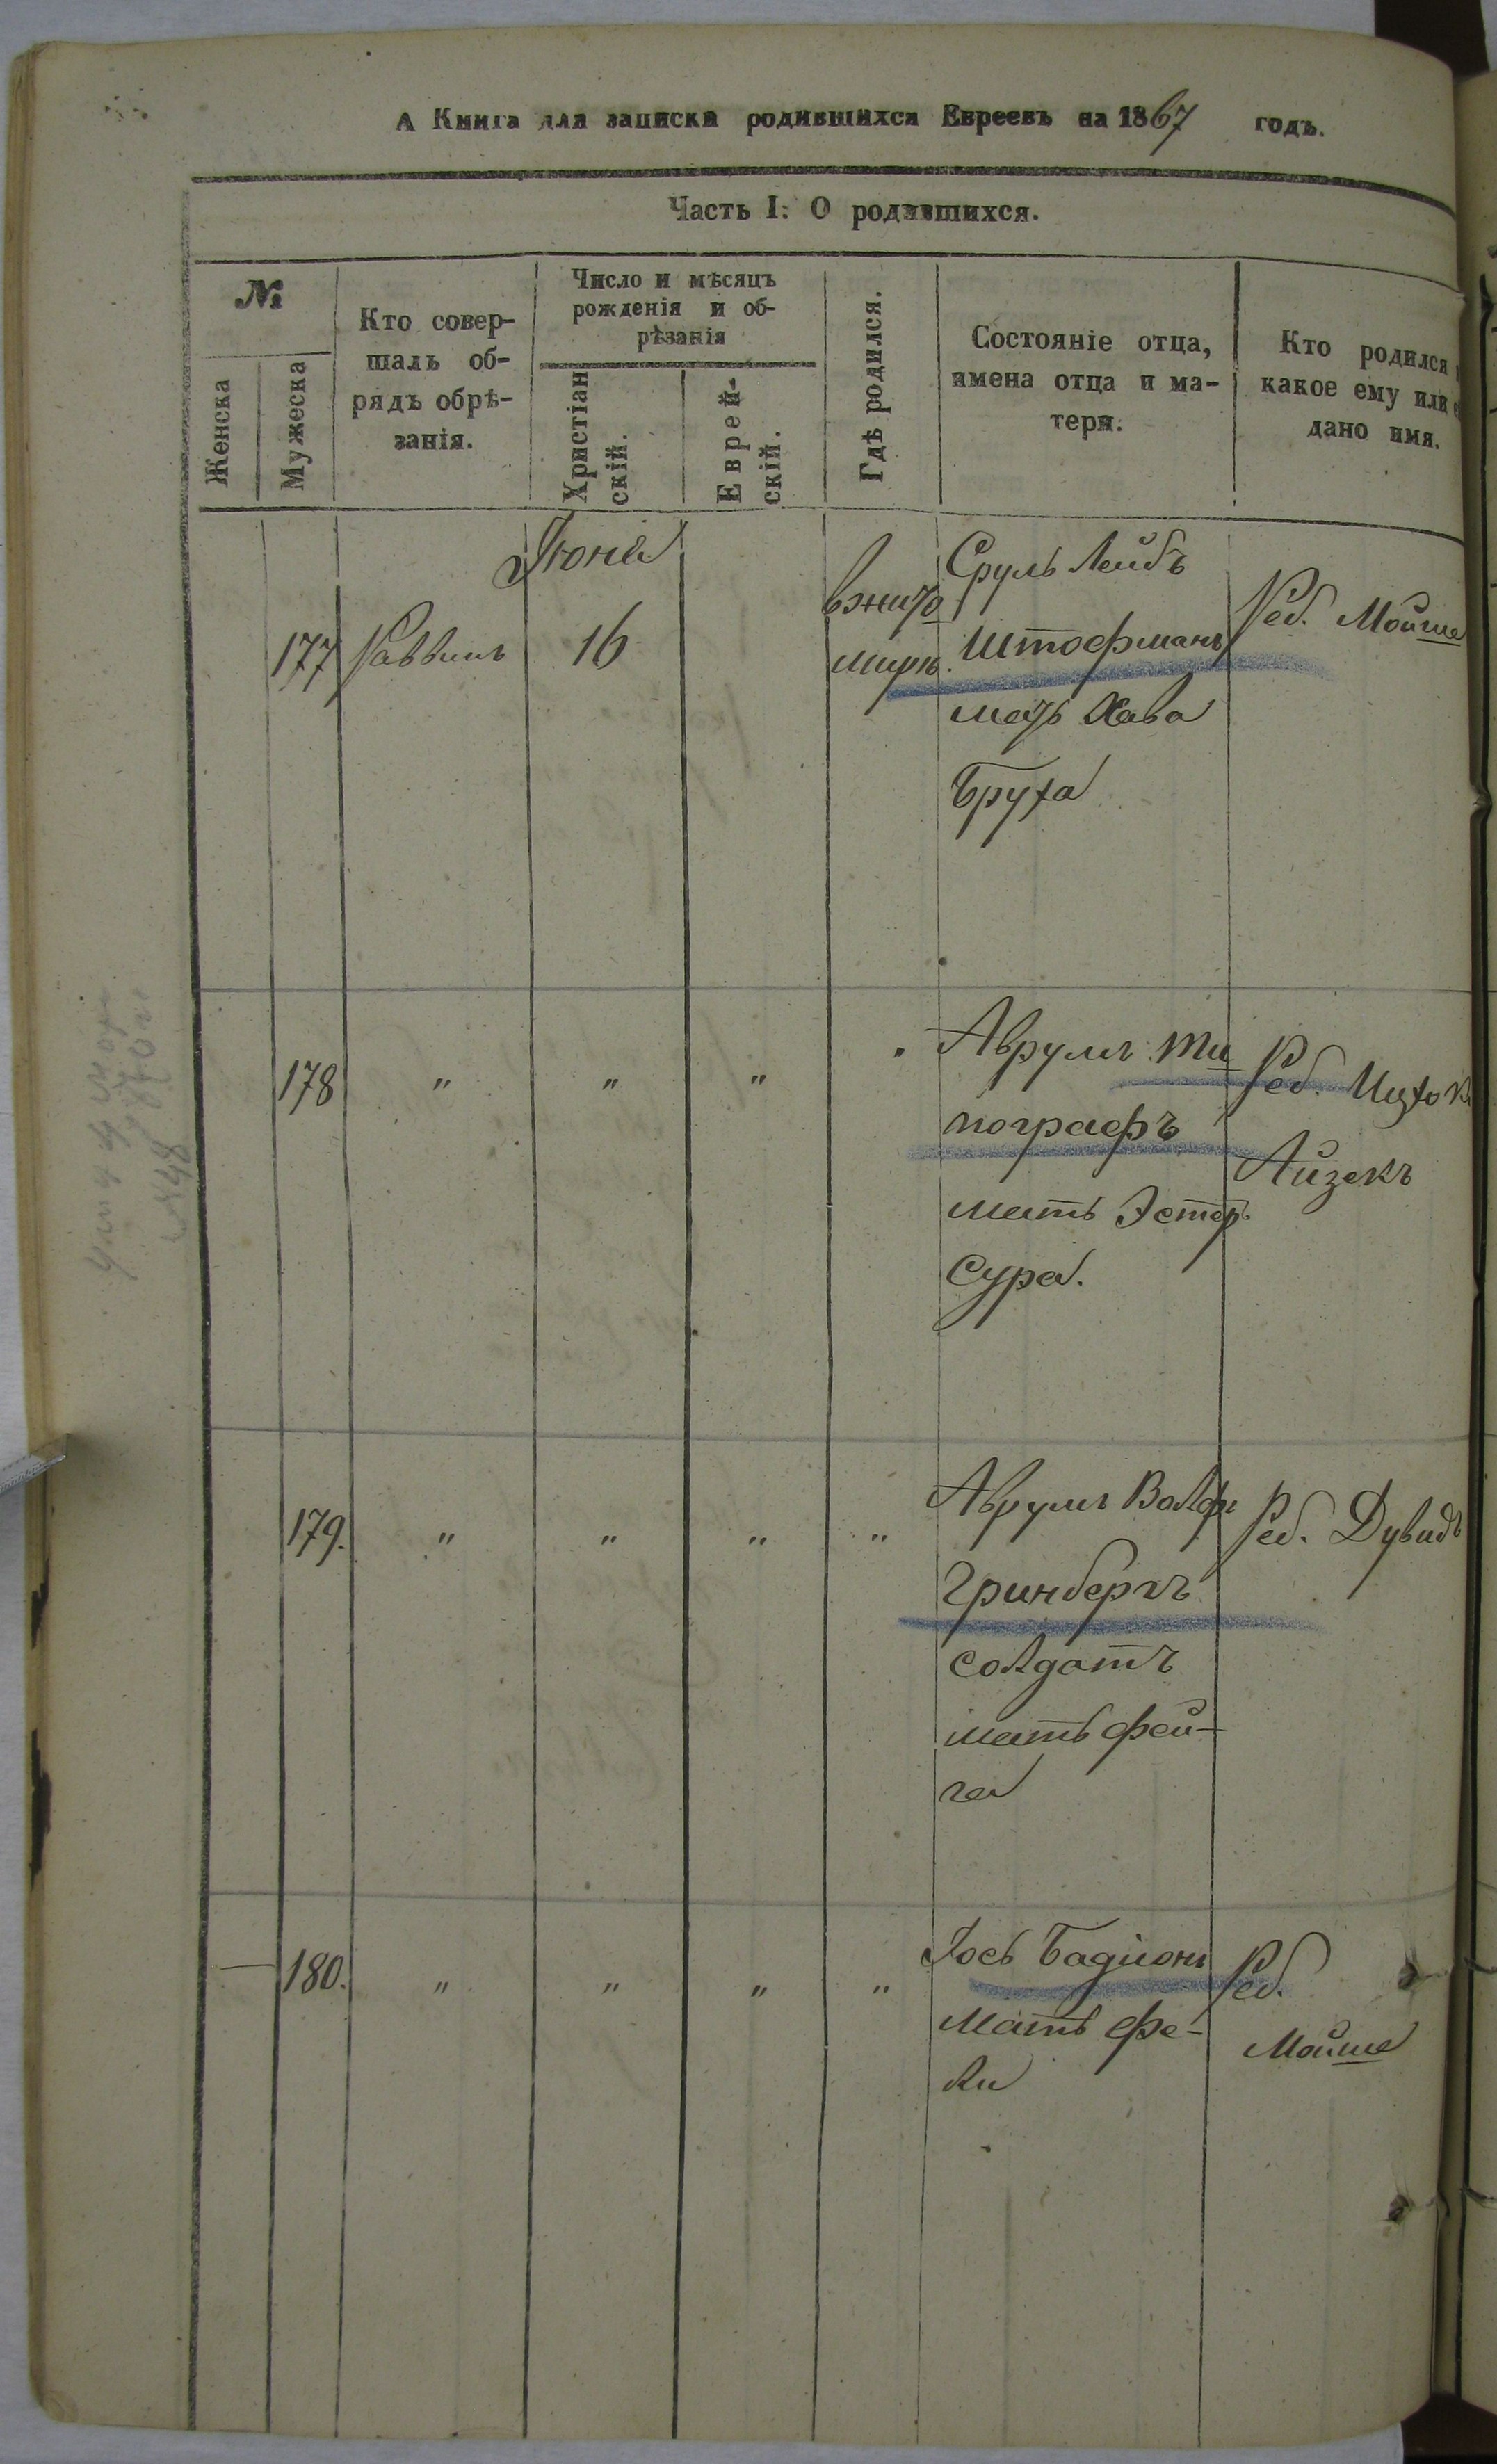 А Книга для записки родившихся Евреевъ на 1867 годъ.
Часть I: О родившихся.
№
Женска
Мужеска
Кто совер-
шалъ об-
рядъ обрѣ-
занія.
Число и мѣсяцъ
рожденія и об-
рѣзанія
Христіан
скій.
Еврей-
скій.
Гдѣ родился.
Состояніе отца,
имена отца и ма-
тери.
Кто родился
какое ему или
дано имя.
Іюня
177 Раввинъ 16
вжито
мирѣ.
Сруль Лейбъ
Штофманъ
мать Хава
Бруха
Реб. Мойше
178 " " " "
Аврумъ Ти
пографъ
мать Эстеръ
Сура.
Реб. Ицхокъ
Айзекъ
179. " " " "
Аврумъ Волфъ
Гринбергъ
солдатъ
мать Фей-
га
Реб. Дувидъ
180. " " " "
Іось Бадіонъ
Мать Фе-
Реб.
Мойше
№48